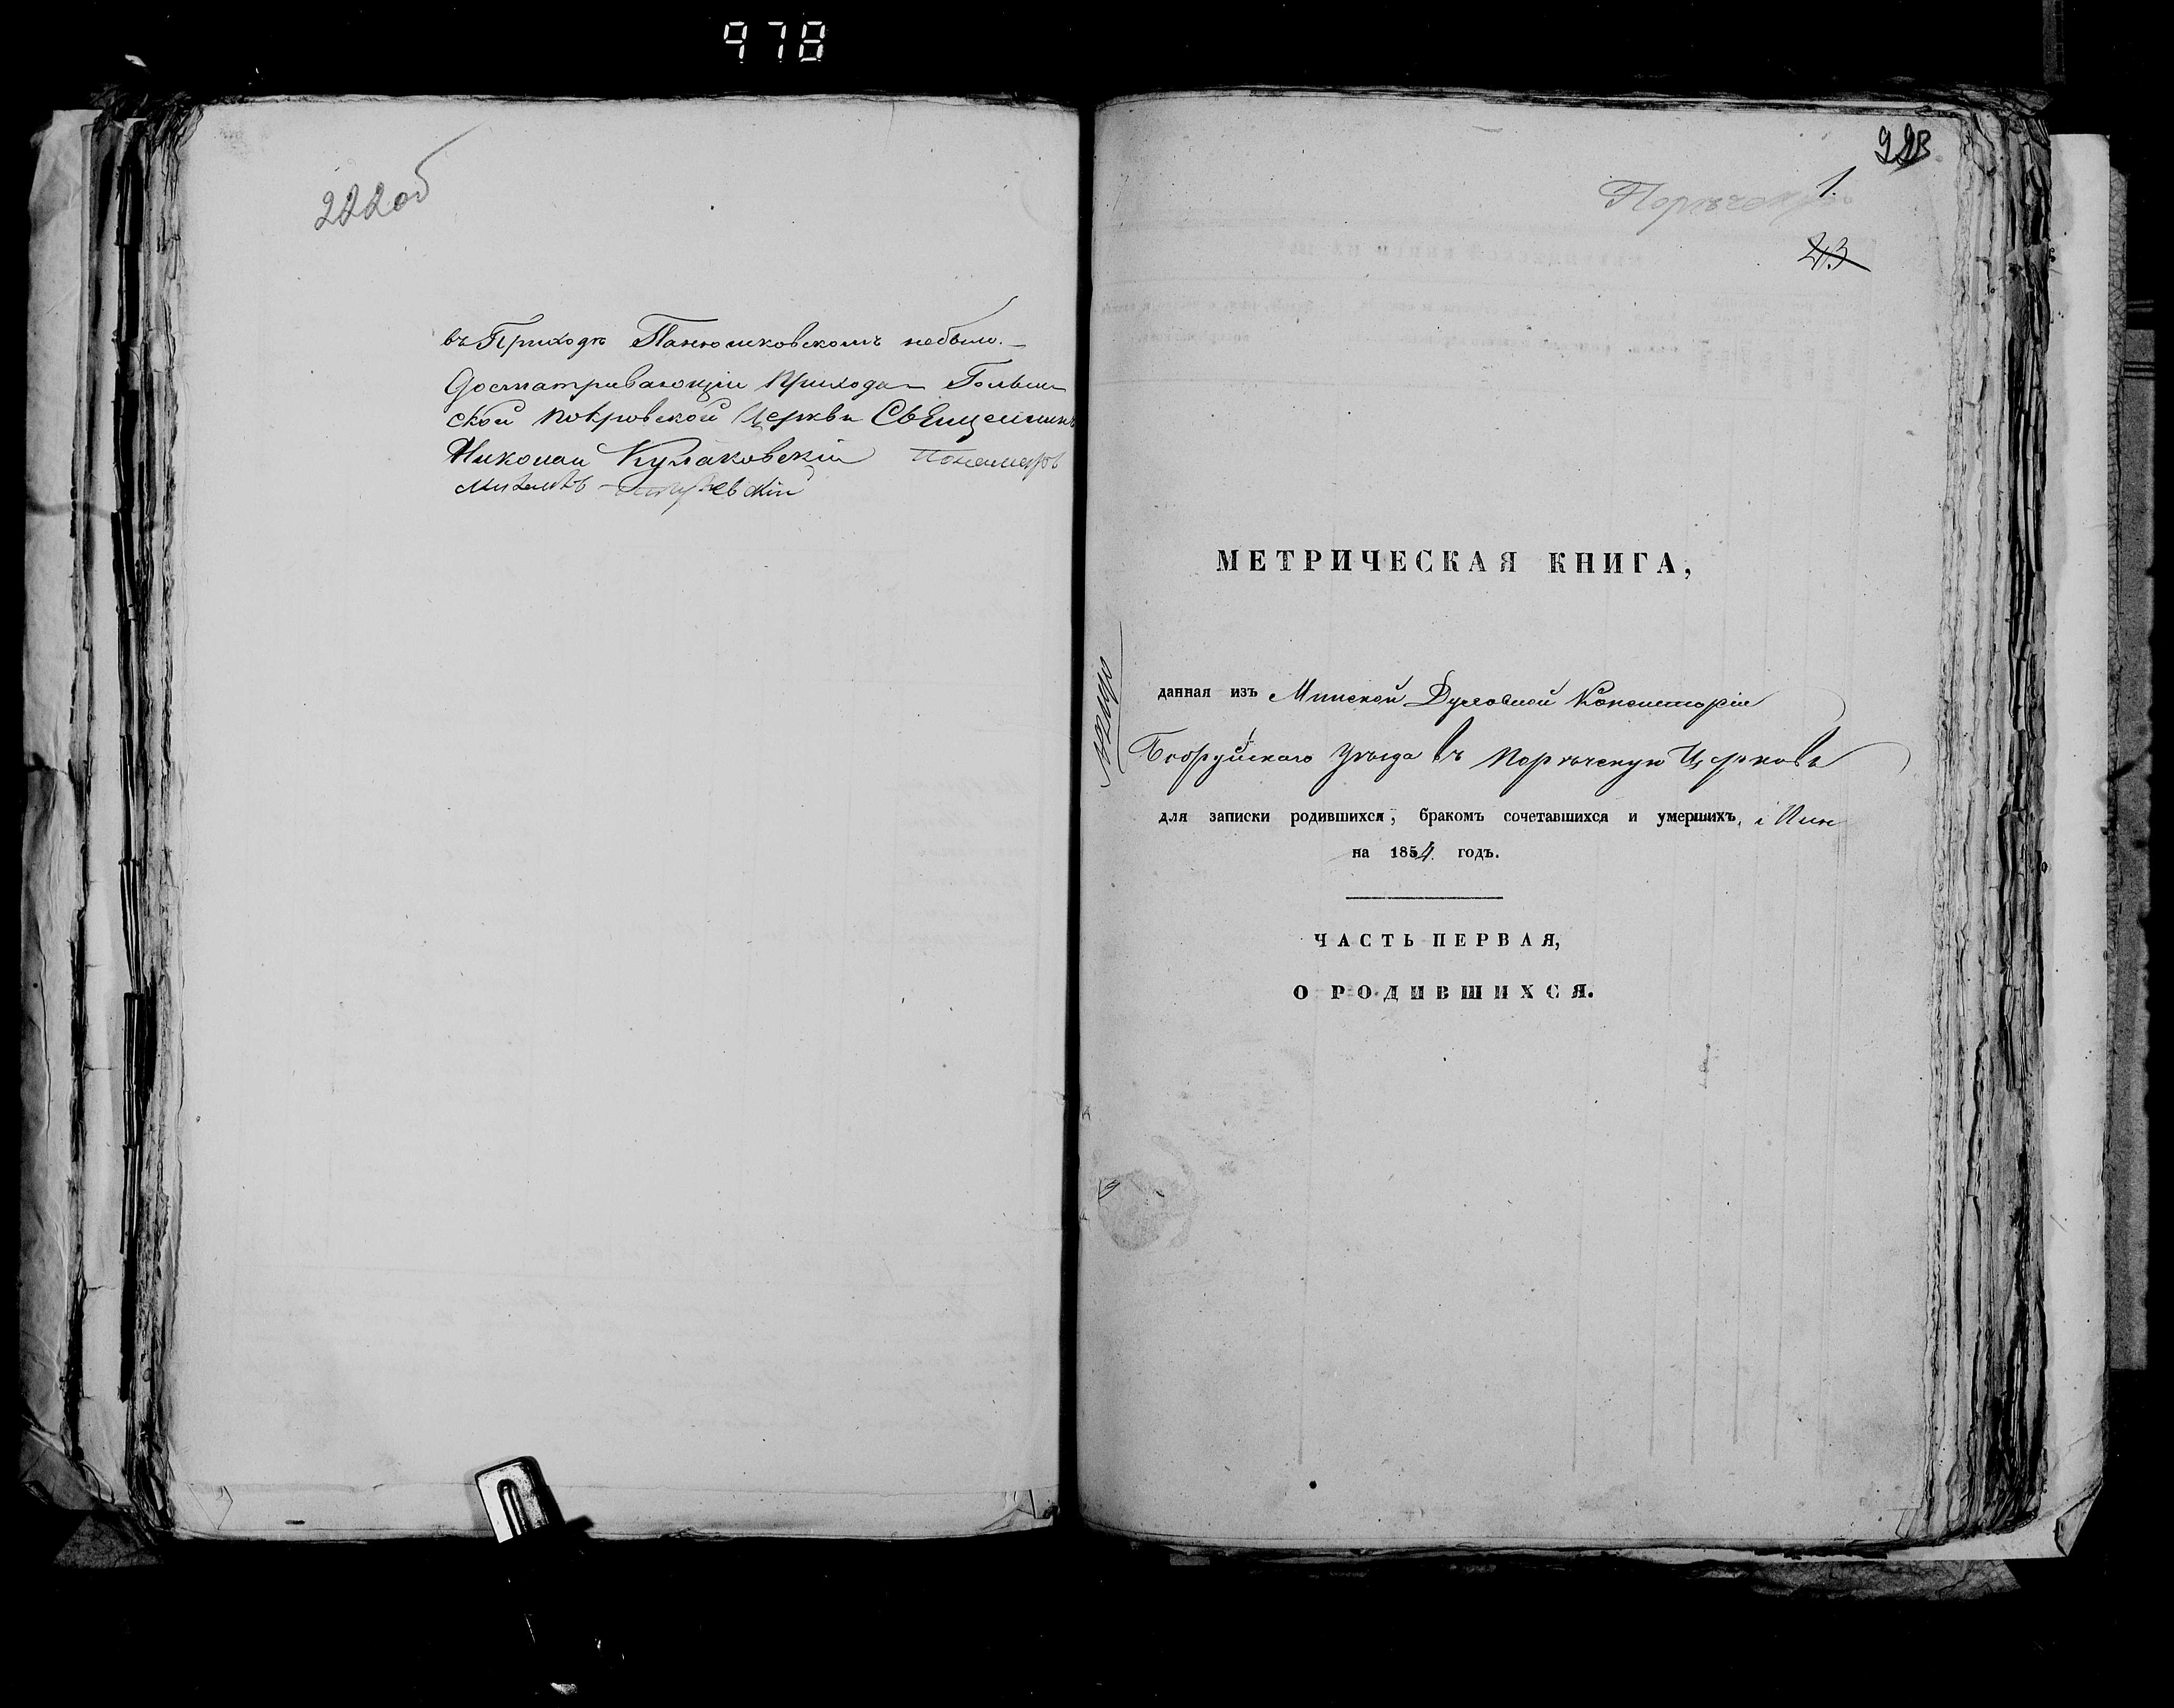 978
222об
въ Приходѣ Панюшковскомъ небыло.
Досматривающiй Прихода Голын-
ской Покровской Церкви Священникъ
Николай Кулаковскiй Пономарь
Михаилъ
223
1.
43
МЕТРИЧЕСКАЯ КНИГА,
данная изъ Минской Духовной Консисторiи
Бобруйскаго Уѣзда въ Порѣчскую Церковь
для записки родившихся, бракомъ сочетавшихся и умершихъ,
на 1854 годъ.
ЧАСТЬ ПЕРВАЯ,
О РОДИВШИХСЯ.